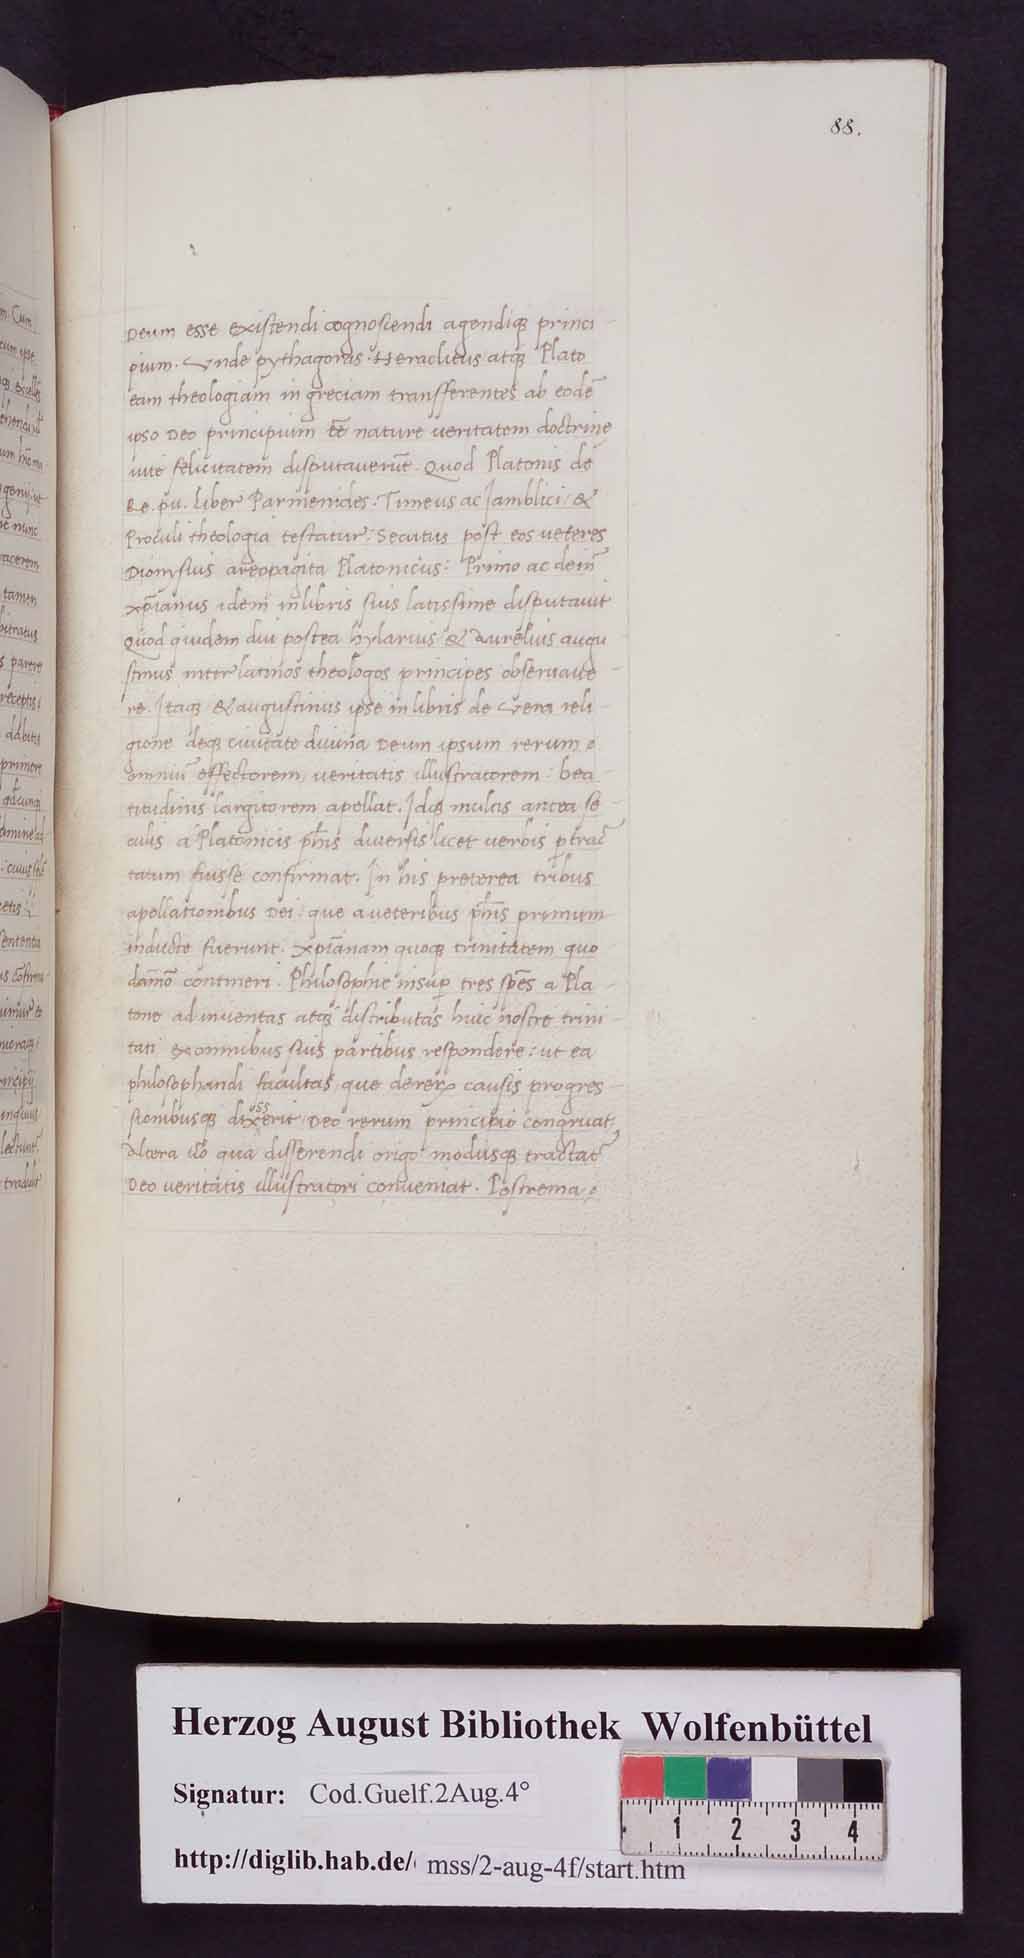 88.
Deum esse existendi cognoscendi agendiq; princi-
pium. Vnde pythagoras. Heraclitus atq; Plato
eam theologiam in greciam transferentes ab eodē
ipso Deo principium eē nature veritatem doctrine
uite felicitatem disputaverūt. Quod Platonis de
Re. pu. Liber Parmenides: Timeus ac Jamblici: &
Proculi theologia testatur. Secutus post eos veteres
Dionysius areopagita Platonicus: Primo ac dein̄
xp̄ianus idem in libris suis latissime disputavit
Quod quidem divi postea hylarius & Aurelius augu
stinus inter latinos theologos principes observave-
re. Itaq; & augustinus ipse in libris de Vera reli-
gione deq; civitate divina Deum ipsum rerum
omniū effectorem, veritatis illustratorem: bea-
titudinis largitorem apellat. Idq; multis antea se-
culis a Platonicis ph̄is diversis licet verbis ꝑtrac
tatum fuisse confirmat. In his preterea tribus
apellationibus Dei: que a veteribus ph̄is primum
inducte fuerunt. xp̄ianam quoq; trinitatem quo
dam̄o contineri. Philosophie insuꝑ tres sp̄es a Pla-
tone ad inventas atq; distributas huic nostre trini-
tati ex omnibus suis partibus respondere: ut ea
philosophandi facultas, que de rerꝝ causis progres-
uss
sionibusq; dixerit, Deo rerum principio congruat,
Altera u͞o qua disserendi origo modusq; tractat᷑
Deo veritatis illustratori conveniat. Postrema
Herzog August Bibliothek Wolfenbüttel
Signatur: Cod.Guelf.2Aug.4°
http://diglib.hab.de/ mss/2-aug-4f/start.htm
1 2 3 4